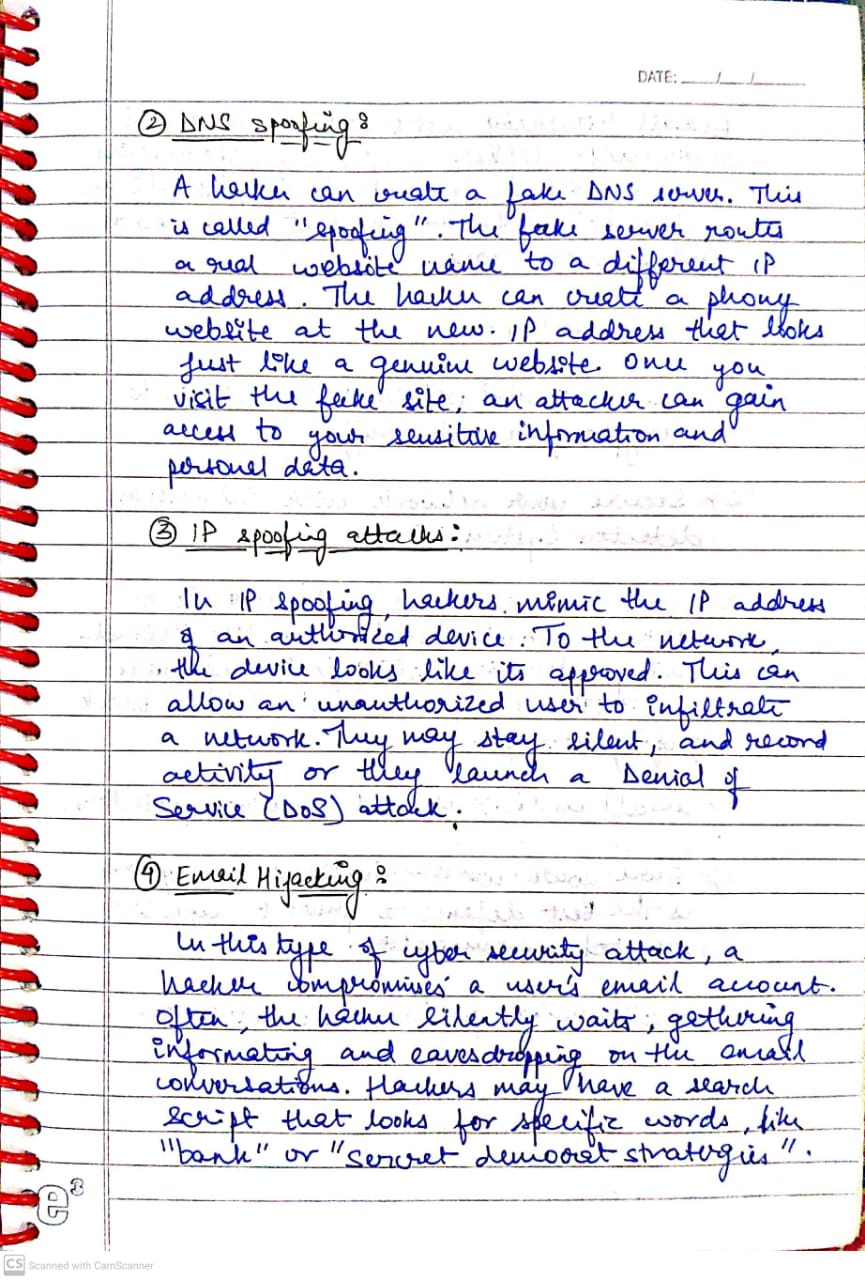 DATE: __/__/__
② DNS spoofing:
A hacker can create a fake DNS server. This
is called "spoofing". The fake server routes
a real website name to a different IP
address. The hacker can create a phony
website at the new. IP address that looks
just like a genuine website. Once you
visit the fake site, an attacker can gain
access to your sensitive information and
personal data.
③ IP spoofing attacks:
In IP spoofing, hackers mimic the IP address
of an authorized device. To the network,
the device looks like its approved. This can
allow an unauthorized user to infiltrate
a network. They may stay silent, and record
activity or they launch a Denial of
Service (DoS) attack.
④ Email Hijacking:
In this type of cyber security attack, a
hacker compromises a user's email account.
Often, the hacker silently waits, gathering
informating and eavesdropping on the email
conversations. Hackers may have a search
script that looks for specific words, like
"bank" or "sercret democrat strategies".
e³
CS Scanned with CamScanner